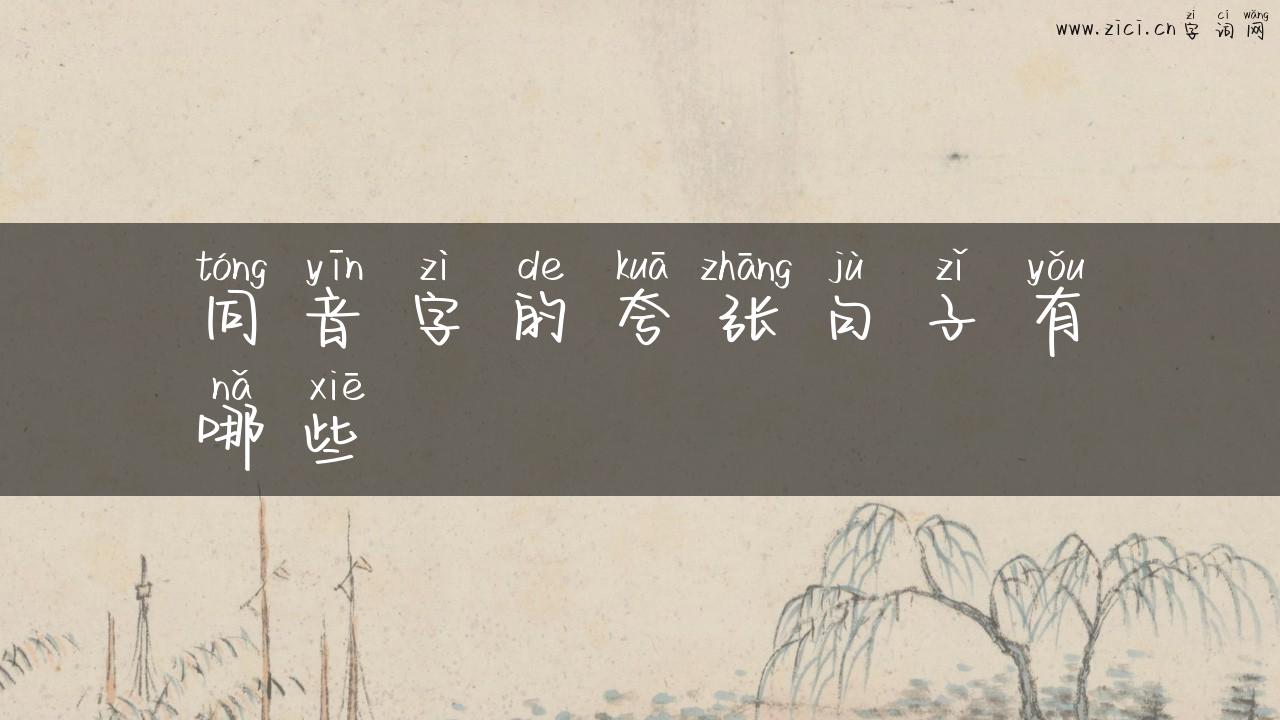 zì cí wǎng
www.zici.cn 字词网
tóng yīn zì de kuā zhāng jù zǐ yǒu
同音字的夸张句子有
nǎ xiē
哪些